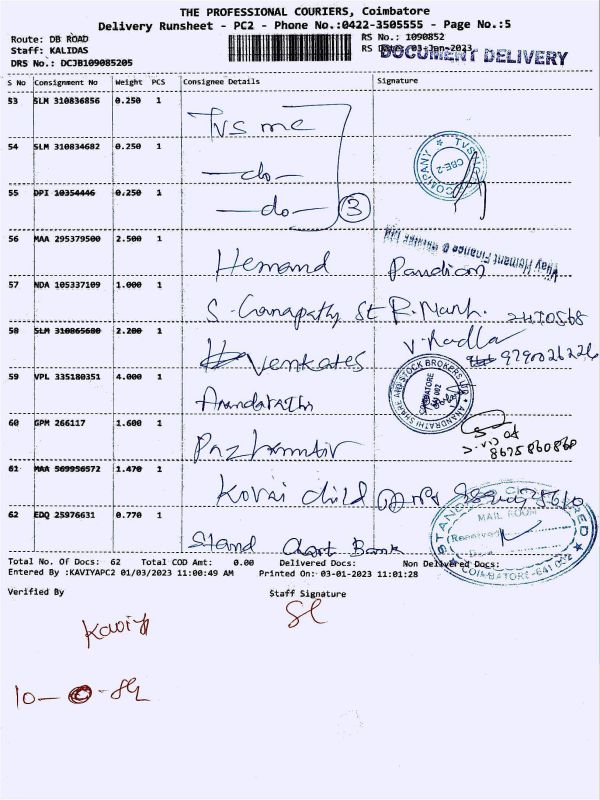 THE PROFESSIONAL COURIERS, Coimbatore
Delivery Runsheet - PC2 - Phone No.:0422-3505555 - Page No.:5
Route: DB ROAD
RS No.: 1090852
Staff: KALIDAS
RS Date: 03-Jan-2023
DOCUMENT DELIVERY
DRS No.: DCJB109085205
S No Consignment No Weight PCS Consignee Details Signature
53 SLM 310836856 0.250 1 TVS me
54 SLM 310834682 0.250 1 —do—
TVS COMPANY CBE-2
55 DPI 10354446 0.250 1 —do— 3
56 MAA 295379500 2.500 1 Hemand Pandian
Vijay Hemant Finance
57 NDA 105337109 1.000 1 S. Ganapathy St R. Mark.
58 SLM 310865680 2.200 1 Venkates
59 VPL 335180351 4.000 1 Anandarathi
ANANDRATHI SHARE AND STOCK BROKERS LTD COIMBATORE
60 GPM 266117 1.600 1 Pazhamudir
8675860860
61 MAA 569956572 1.470 1 Kovai Child
62 EDQ 25976631 0.770 1 Stand Chart Bank
MAIL ROOM
Received
COIMBATORE-641 002
Total No. Of Docs: 62 Total COD Amt: 0.00 Delivered Docs: Non Delivered Docs:
Entered By :KAVIYAPC2 01/03/2023 11:00:49 AM Printed On: 03-01-2023 11:01:28
Verified By Staff Signature
Kaviya